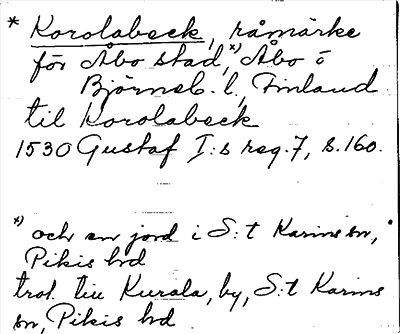 * Korolabeck, råmärke
för Åbo stad,*) Åbo o
Björneb. l., Finland
til Korolabeck
1530 Gustaf I:s reg. 7, s. 160.
*) och en jord i S:t Karins sn,
Pikis hd
trol. till Kurala, by, S:t Karins
sn, Pikis hd